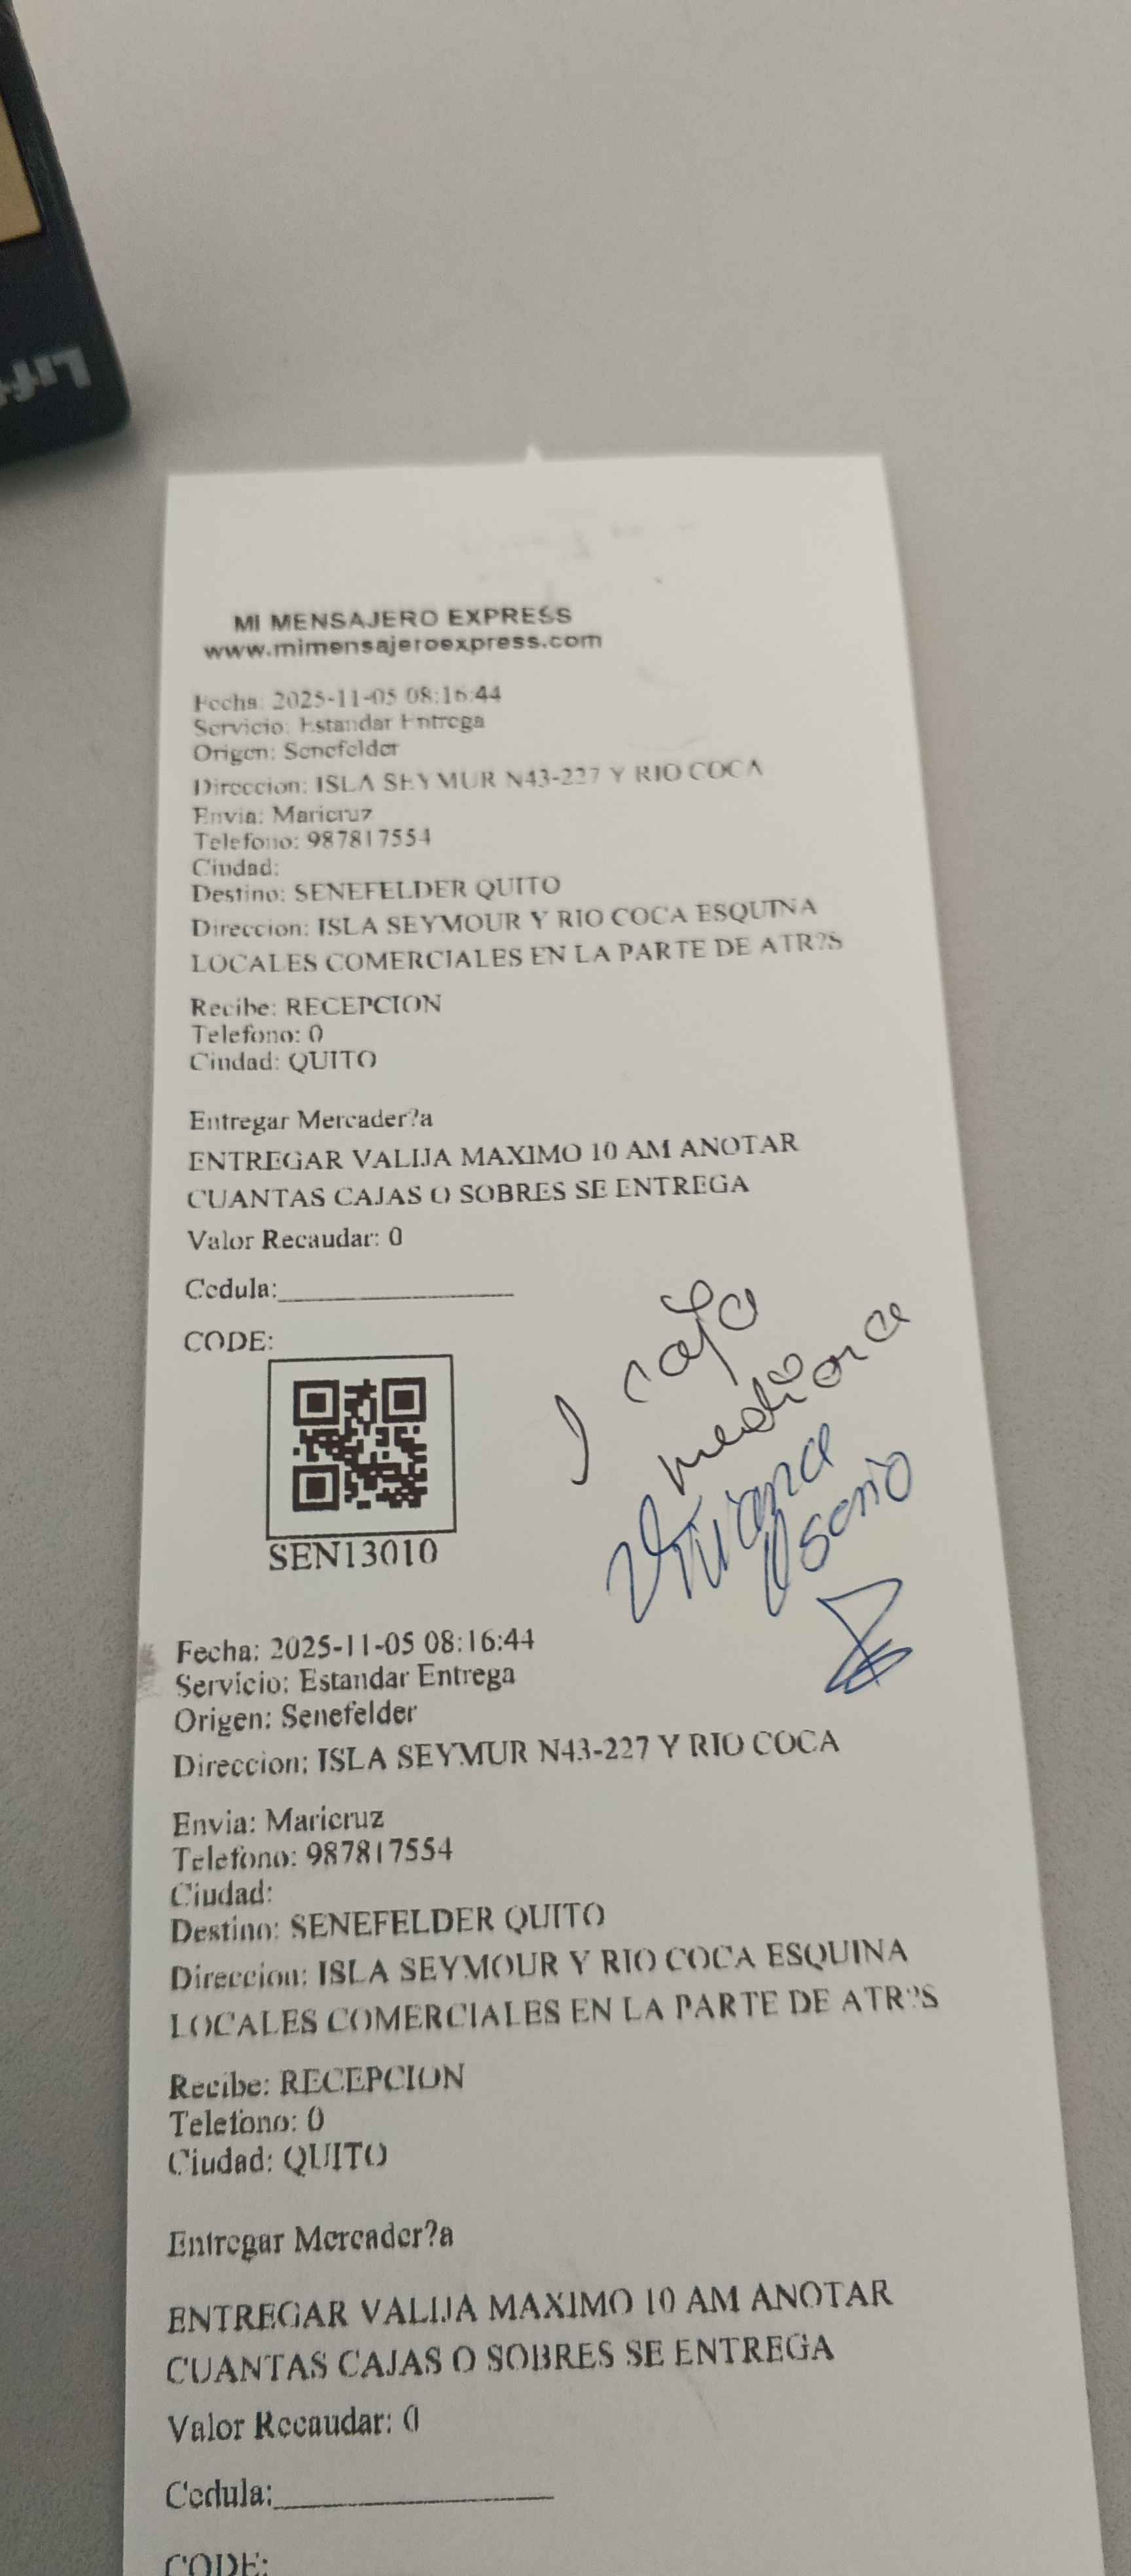 MI MENSAJERO EXPRESS
www.mimensajeroexpress.com
Fecha: 2025-11-05 08:16:44
Servicio: Estandar Entrega
Origen: Senefelder
Direccion: ISLA SEYMUR N43-227 Y RIO COCA
Envia: Maricruz
Telefono: 987817554
Ciudad:
Destino: SENEFELDER QUITO
Direccion: ISLA SEYMOUR Y RIO COCA ESQUINA
LOCALES COMERCIALES EN LA PARTE DE ATR?S
Recibe: RECEPCION
Telefono: 0
Ciudad: QUITO
Entregar Mercader?a
ENTREGAR VALIJA MAXIMO 10 AM ANOTAR
CUANTAS CAJAS O SOBRES SE ENTREGA
Valor Recaudar: 0
Cedula:
CODE:
1 caja
mediana
Viviana
Osorio
SEN13010
Fecha: 2025-11-05 08:16:44
Servicio: Estandar Entrega
Origen: Senefelder
Direccion: ISLA SEYMUR N43-227 Y RIO COCA
Envia: Maricruz
Telefono: 987817554
Ciudad:
Destino: SENEFELDER QUITO
Direccion: ISLA SEYMOUR Y RIO COCA ESQUINA
LOCALES COMERCIALES EN LA PARTE DE ATR?S
Recibe: RECEPCION
Telefono: 0
Ciudad: QUITO
Entregar Mercader?a
ENTREGAR VALIJA MAXIMO 10 AM ANOTAR
CUANTAS CAJAS O SOBRES SE ENTREGA
Valor Recaudar: 0
Cedula:
CODE: